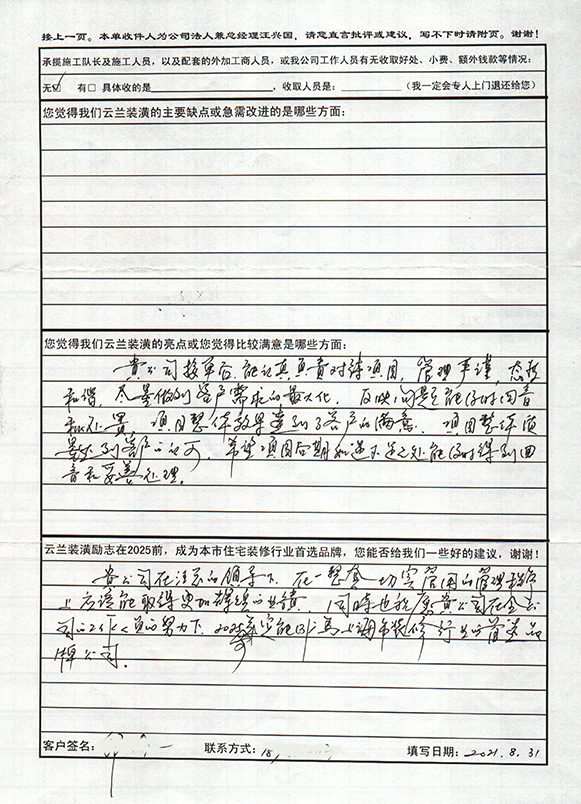 接上一页。本单收件人为公司法人兼总经理汪兴国，请您直言批评或建议，写不下时请附页。谢谢！
承揽施工队长及施工人员，以及配套的外加工商人员，或我公司工作人员有无收取好处、小费、额外钱款等情况：
无☑ 有□ 具体收的是 ，收取人员是： （我一定会专人上门退还给您）
您觉得我们云兰装潢的主要缺点或急需改进的是哪些方面：
您觉得我们云兰装潢的亮点或您觉得比较满意是哪些方面：
贵公司接单后，能认真负责对待项目，管理严谨，态度
和谐，尽量做到客户需求的最大化，反映问题能及时回音
和处置，项目整体效果达到了客户的满意，项目整体质
量达到客户认可，希望项目后期如遇不足之处能及时得到回
音和妥善处理。
云兰装潢励志在2025前，成为本市住宅装修行业首选品牌，您能否给我们一些好的建议，谢谢！
贵公司在汪总的领导下，在一整套切实管用的管理
上应该能取得更加辉煌的业绩，同时也祝愿贵公司在全公
司的努力下，2025 定能 装修行业的首选品
牌公司。
客户签名： 联系方式：18 填写日期：2021.8.31